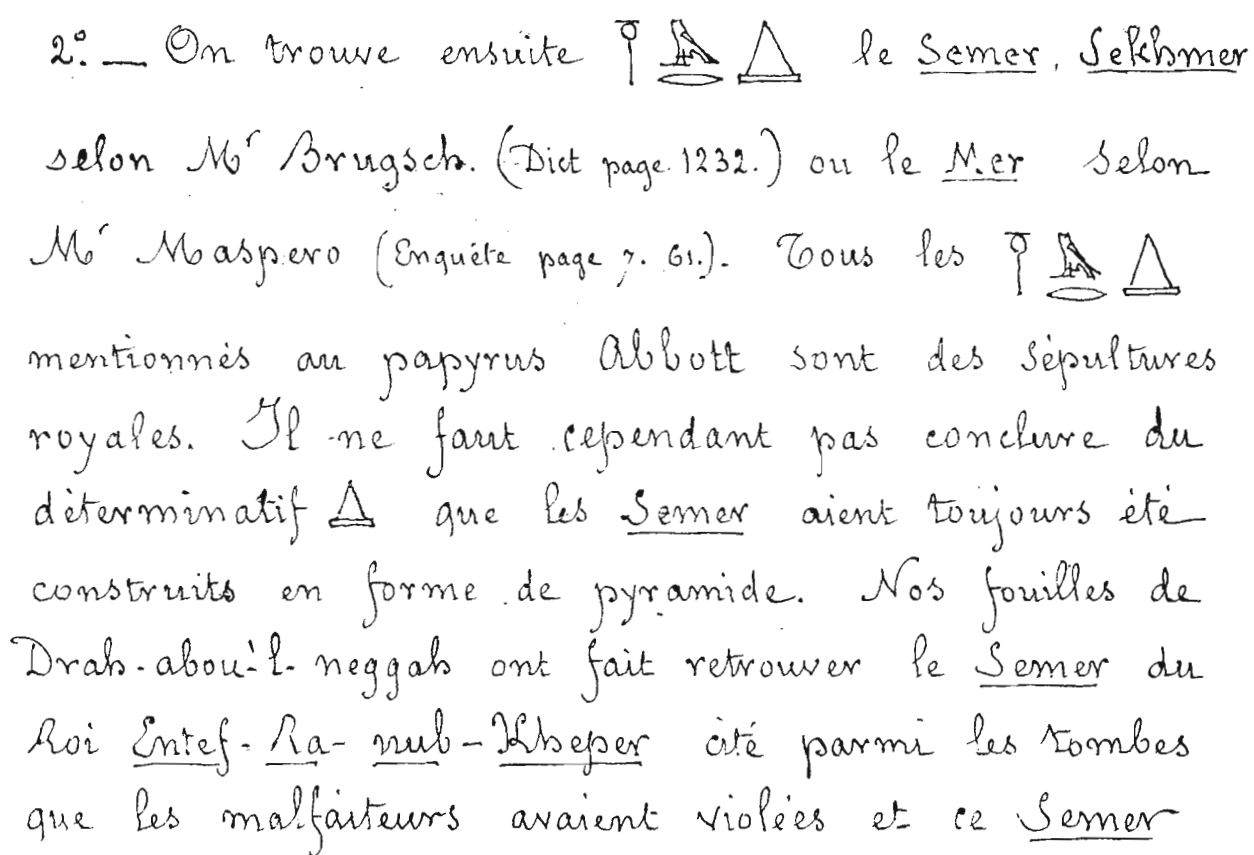 2.° — On trouve ensuite le Semer, Sekhmer
selon Mr Brugsch. (Dict page. 1232.) ou le Mer selon
Mr Maspero (Enquête page 7. 61.). Tous les
mentionnés au papyrus Abbott sont des sépultures
royales. Il ne faut cependant pas conclure du
déterminatif que les Semer aient toujours été
construits en forme de pyramide. Nos fouilles de
Drah-abou-'l-neggah ont fait retrouver le Semer du
Roi Entef-Ra-nub-Kheper cité parmi les tombes
que les malfaiteurs avaient violées et ce Semer